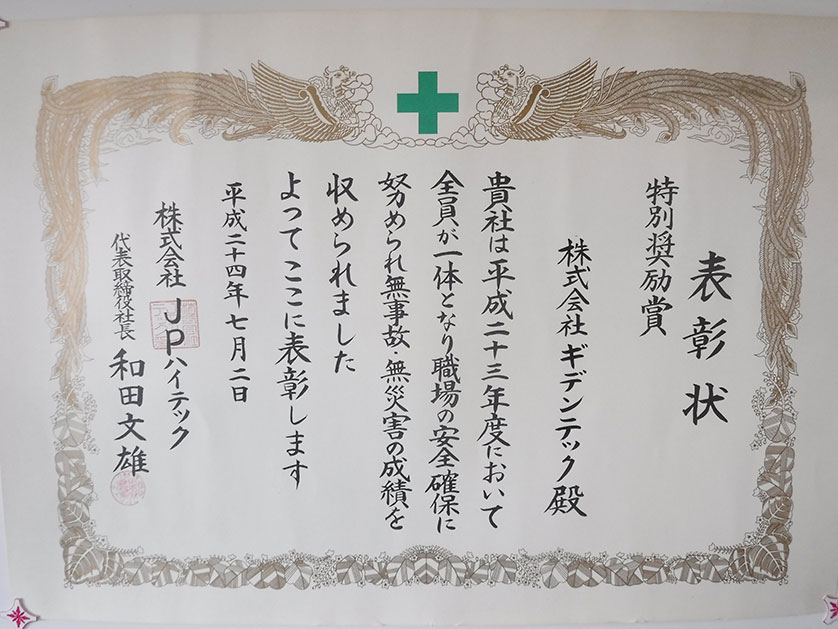 表彰状
特別奨励賞
株式会社 ギデンテック 殿
貴社は平成二十三年度において
全員が一体となり職場の安全確保に
努められ無事故・無災害の成績を
収められました
よってここに表彰します
平成二十四年七月二日
株式会社 JPハイテック
代表取締役社長 和田文雄